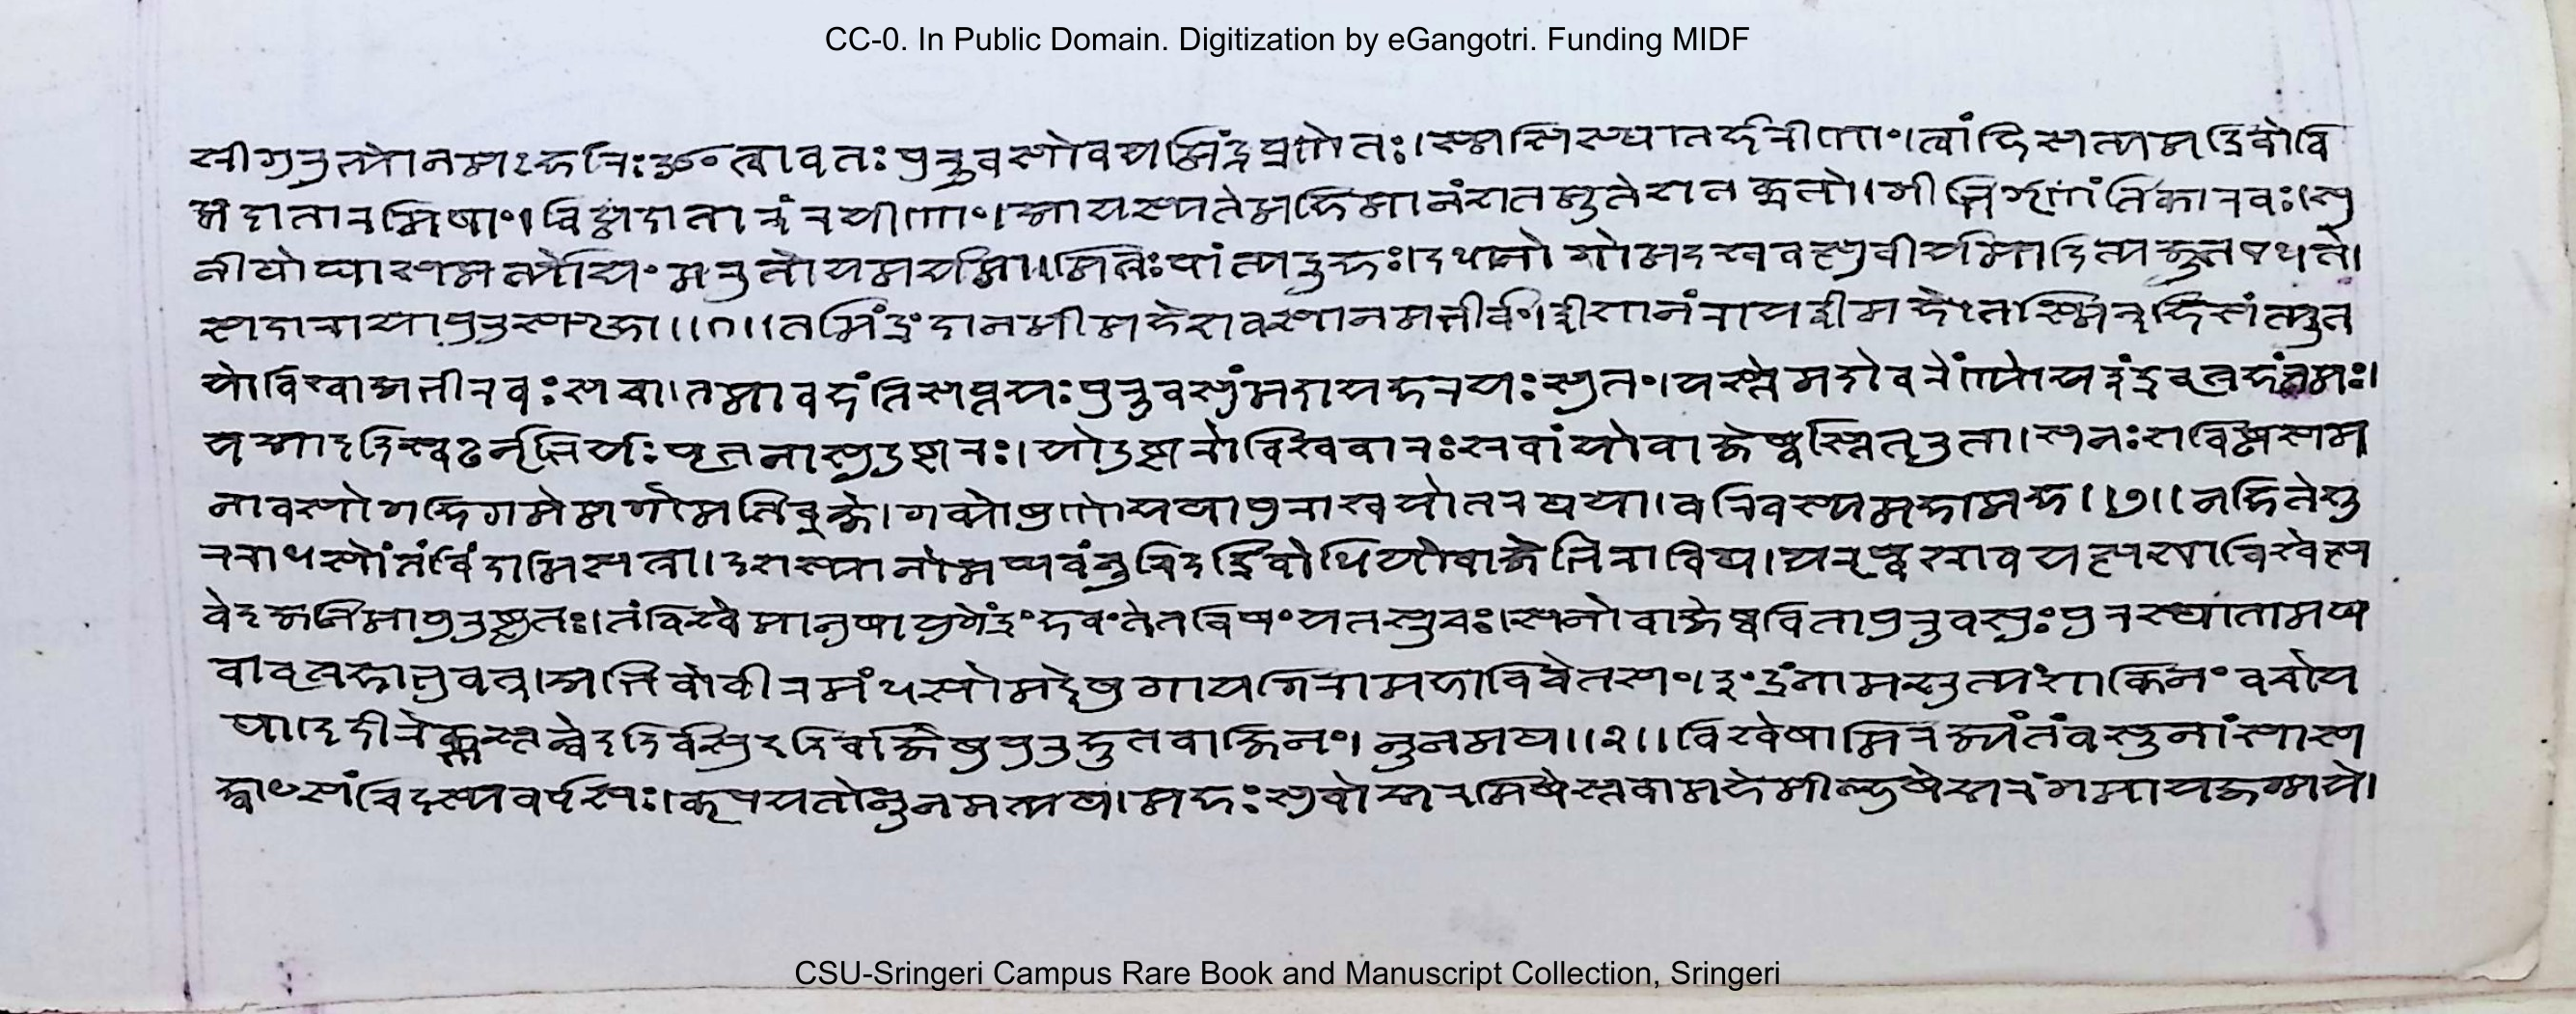 CC-0. In Public Domain. Digitization by eGangotri. Funding MIDF
श्रीगुरुभ्योनमःहरिःॐत्वावतःपुरूवसोवयमिंद्रप्रणेतः।स्मसिस्थातर्हरीणां।त्वांहिसत्यमद्रिवोवि
द्मदातारमिषां।विद्मदातारंरयीणां।आयस्यतेमहिमानंशतमूतेशतक्रतो।गीर्भिर्गृणंतिकारवः।सु
नीथोघासमर्त्योयंमरुतोयमर्यमा।मित्रःपांत्यद्रुहः।दधानोगोमदश्ववत्सुवीर्यमादित्यजूतएधते।
सदारायापुरुस्पृहा॥१॥तमिंद्रंदानमीमहेशवसानमभीर्वं।ईशानंरायईमहे।तस्मिन्हिसंत्यूत
योविश्वाअभीरवःसचा।तमावहंतिसप्तयःपुरूवसुंमदायहरयःसुतं।यस्तेमदोवरेंण्योयइंद्रवृत्रहंतमः।
यआददिस्व१र्नृभिर्यःपृतनासुदुष्टरः।योदुष्टरोविश्ववारःश्रवांय्योवाजेष्वस्तितरुता।सनःशविष्ठसम
नावसोगहिगमेमगोमतिव्रजे।गव्योषुणोयथापुराश्वयोतरथया।वरिवस्यमहामह॥७॥नहितेशू
रराधसोंतंविंदामिसत्रा।दशस्यानोमघवंनूचिदद्रिवोधियोवाजेभिराविथ।यऋष्वश्रावयत्सखाविश्वेत्स
वेदजनिमापुरुष्टुतः।तंविश्वेमानुषायुगेंद्रंहवंतेतविषंयतस्रुचः।सनोवाजेष्ववितापुरूवसुःपुरस्थातामघ
वावृत्रहाभुवत्।अभिवोवीरमंधसोमदेषुगायगिरामहाविचेतसं।इंद्रंनामश्रुत्यंशाकिनंवचोय
था।ददीरेक्णस्तन्वेददिर्वसुददिर्वाजेषुपुरुहूतवाजिनं।नूनमथ॥२॥विश्वेषामिरज्यंतंवसूनांसास
ह्वांसंचिदस्यवर्पसः।कृपयतोनूनमत्यथ।महःसुवोअरमिषेस्तवामहेमीळ्हुषेअरंगमायजग्मये।
CSU-Sringeri Campus Rare Book and Manuscript Collection, Sringeri